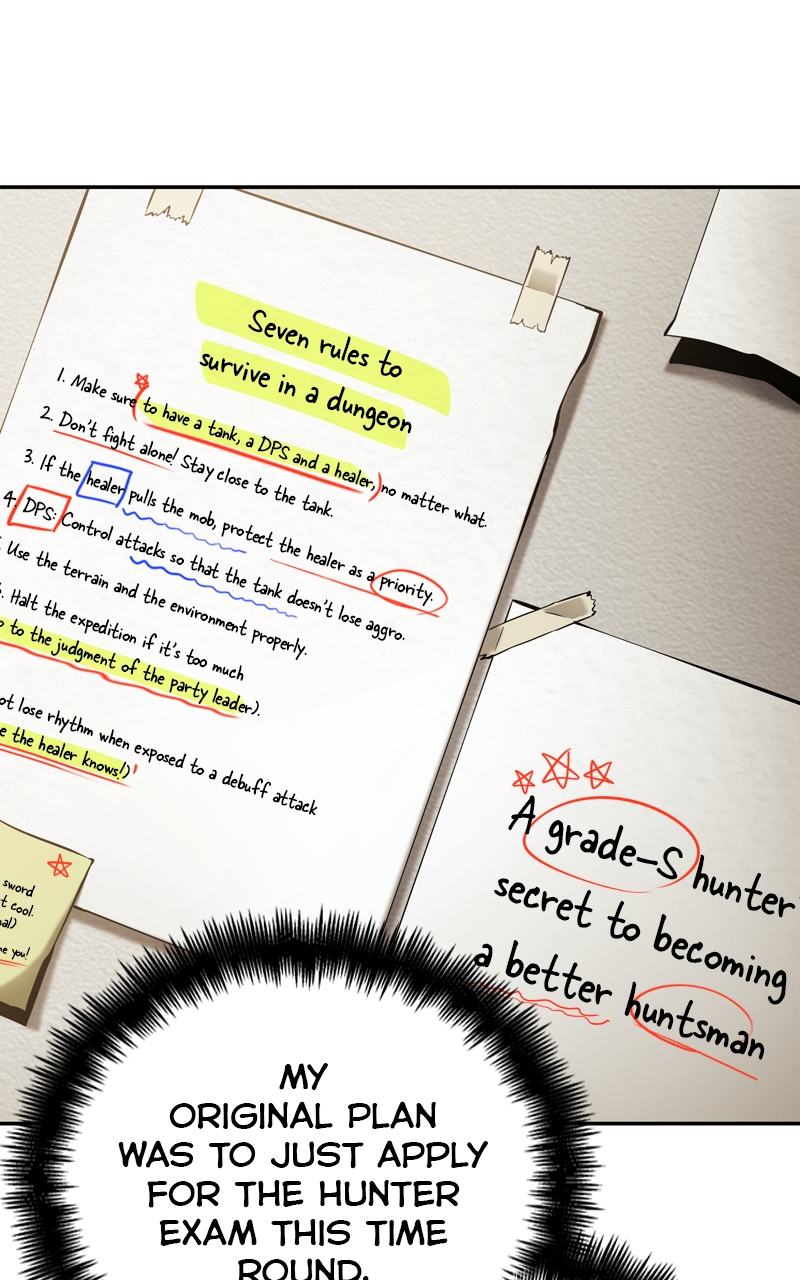 Seven rules to
survive in a dungeon
1. Make sure to have a tank, a DPS and a healer, no matter what.
2. Don't fight alone! Stay close to the tank.
3. If the healer pulls the mob, protect the healer as a priority.
4. DPS: Control attacks so that the tank doesn't lose aggro.
Use the terrain and the environment properly.
. Halt the expedition if it's too much
to the judgment of the party leader).
lose rhythm when exposed to a debuff attack
the healer knows!)
sword
cool.
you!
A grade-S hunter
secret to becoming
a better huntsman
MY
ORIGINAL PLAN
WAS TO JUST APPLY
FOR THE HUNTER
EXAM THIS TIME
ROUND.